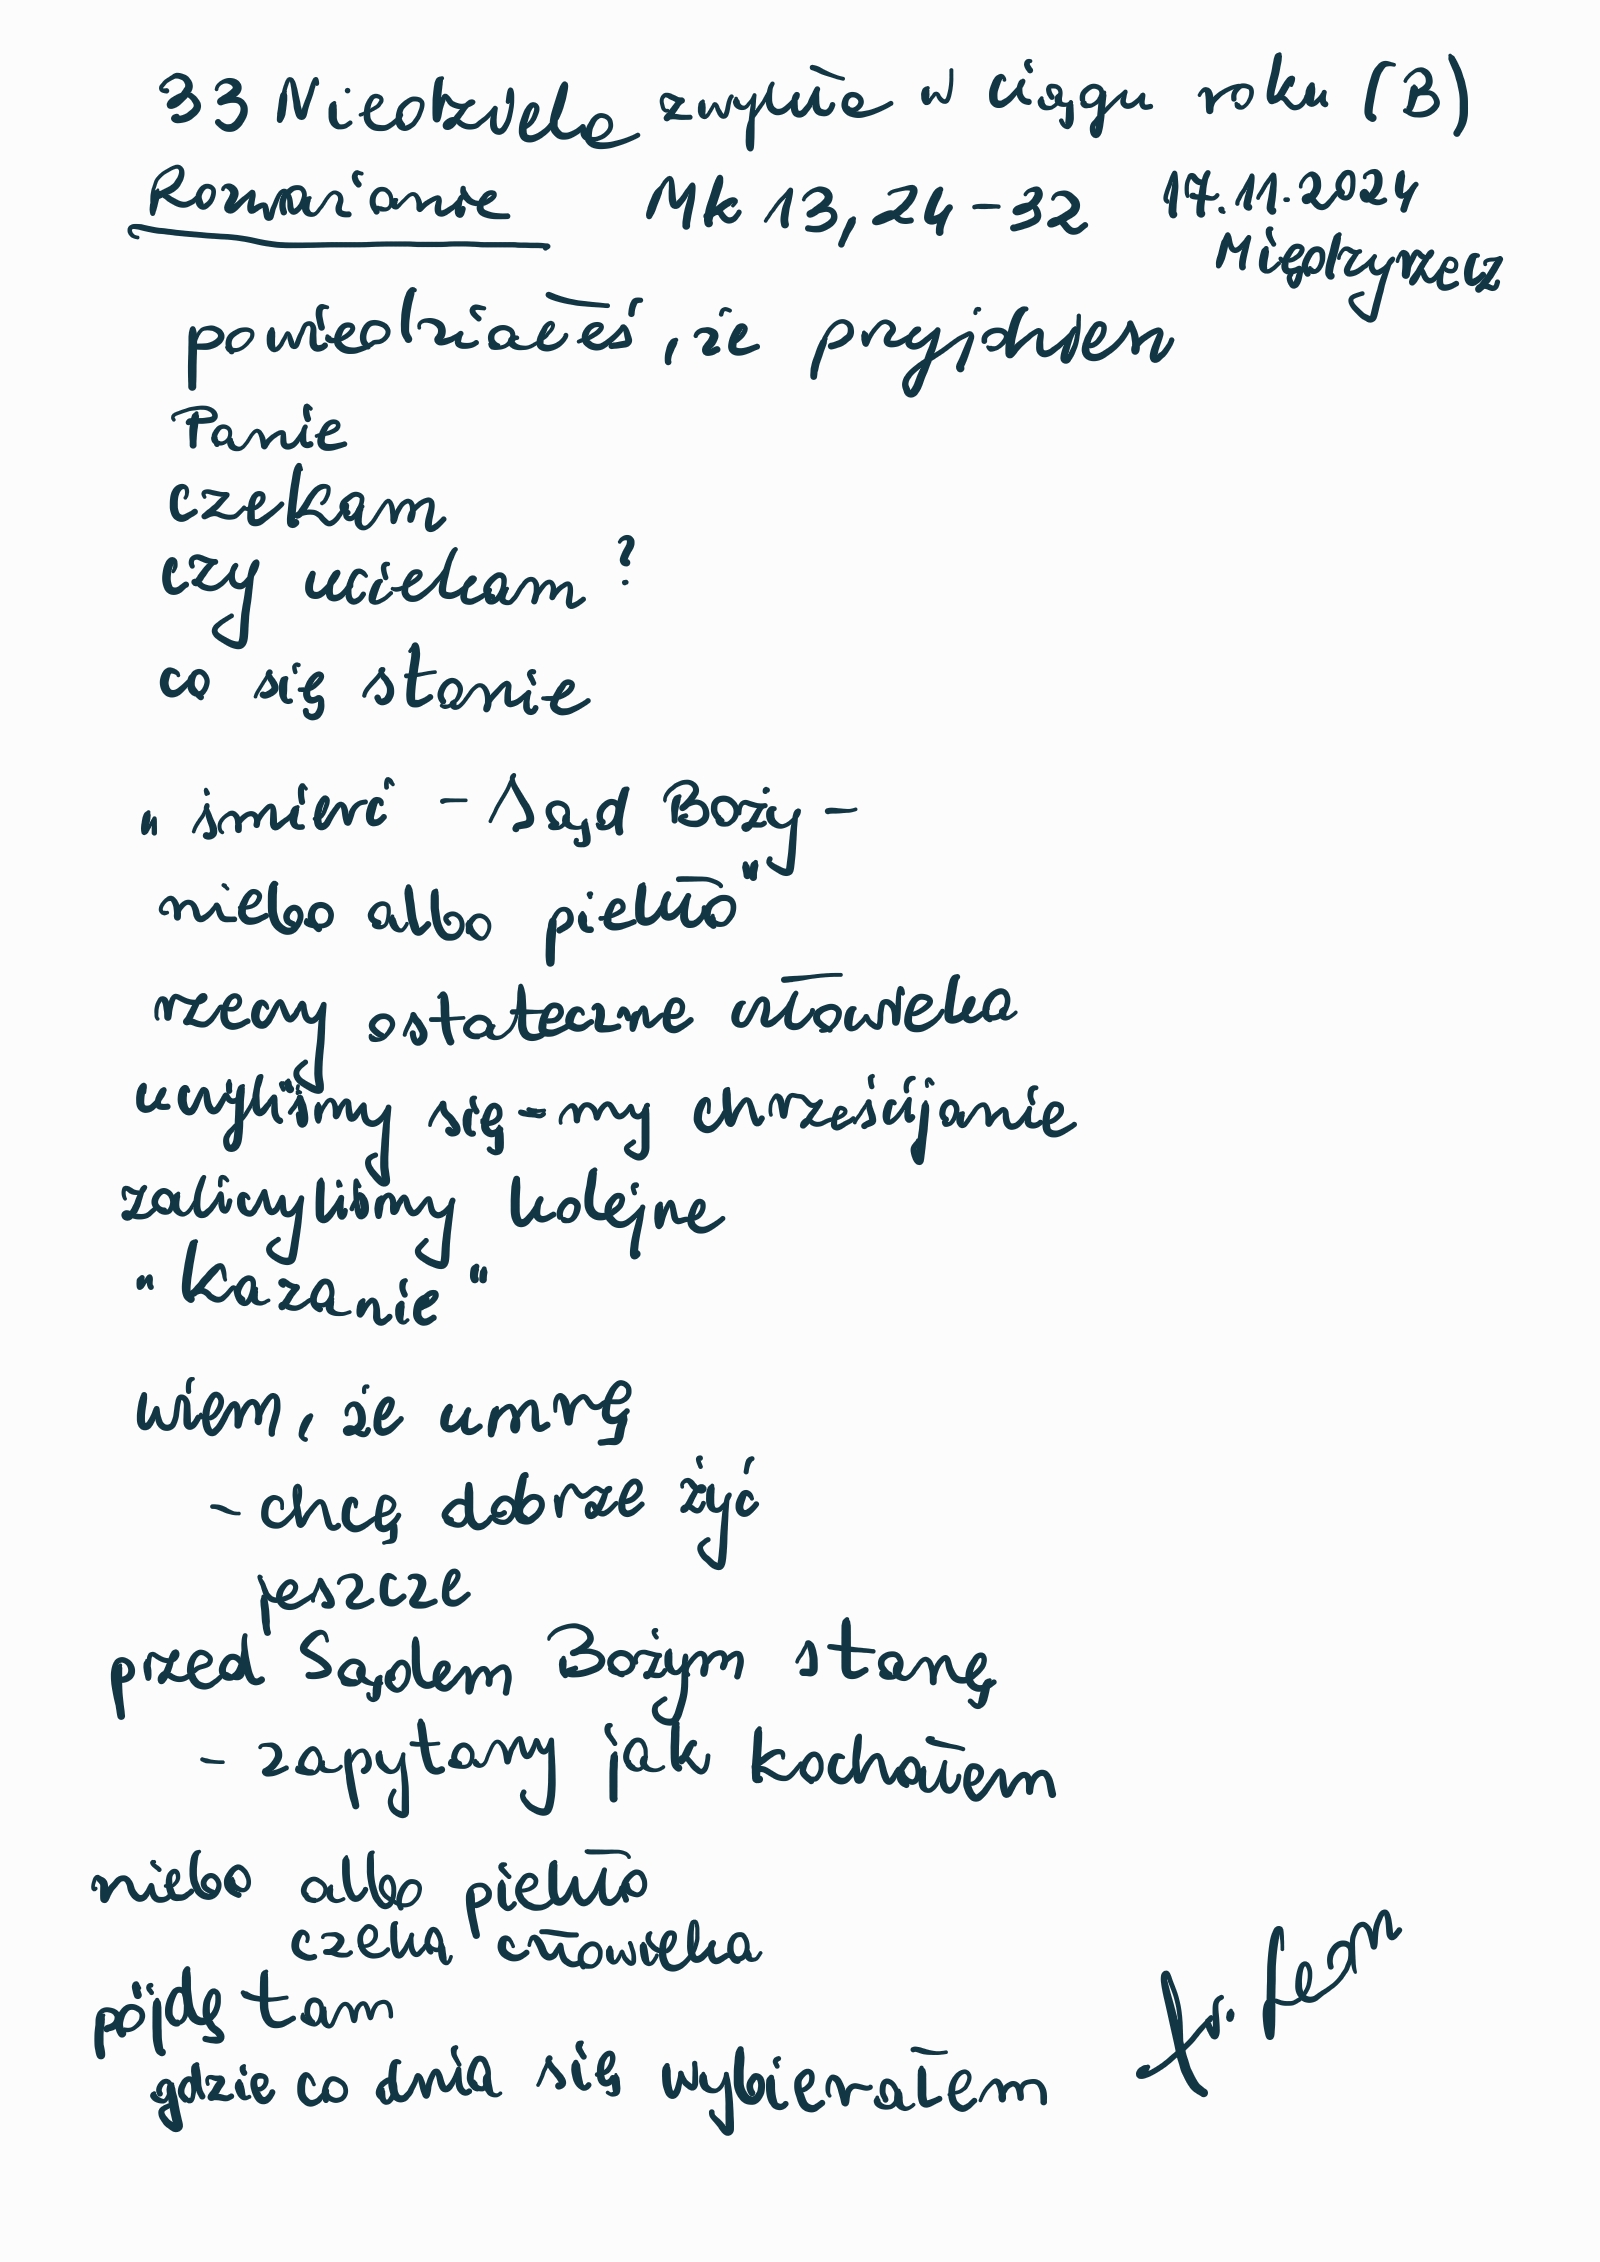 33 Niedziela zwykła w ciągu roku (B)
Rozważanie Mk 13, 24-32 17.11.2024
Międzyrzecz
powiedziałeś, że przyjdziesz
Panie
czekam
czy uciekam?
co się stanie
„śmierć - Sąd Boży -
niebo albo piekło"
rzeczy ostateczne człowieka
uczyliśmy się - my chrześcijanie
zaliczyliśmy kolejne
"kazanie"
wiem, że umrę
- chcę dobrze żyć
jeszcze
przed Sądem Bożym stanę
- zapytany jak kochałem
niebo albo piekło
czeka człowieka
pójdę tam
gdzie co dnia się wybierałem
fr. Leon